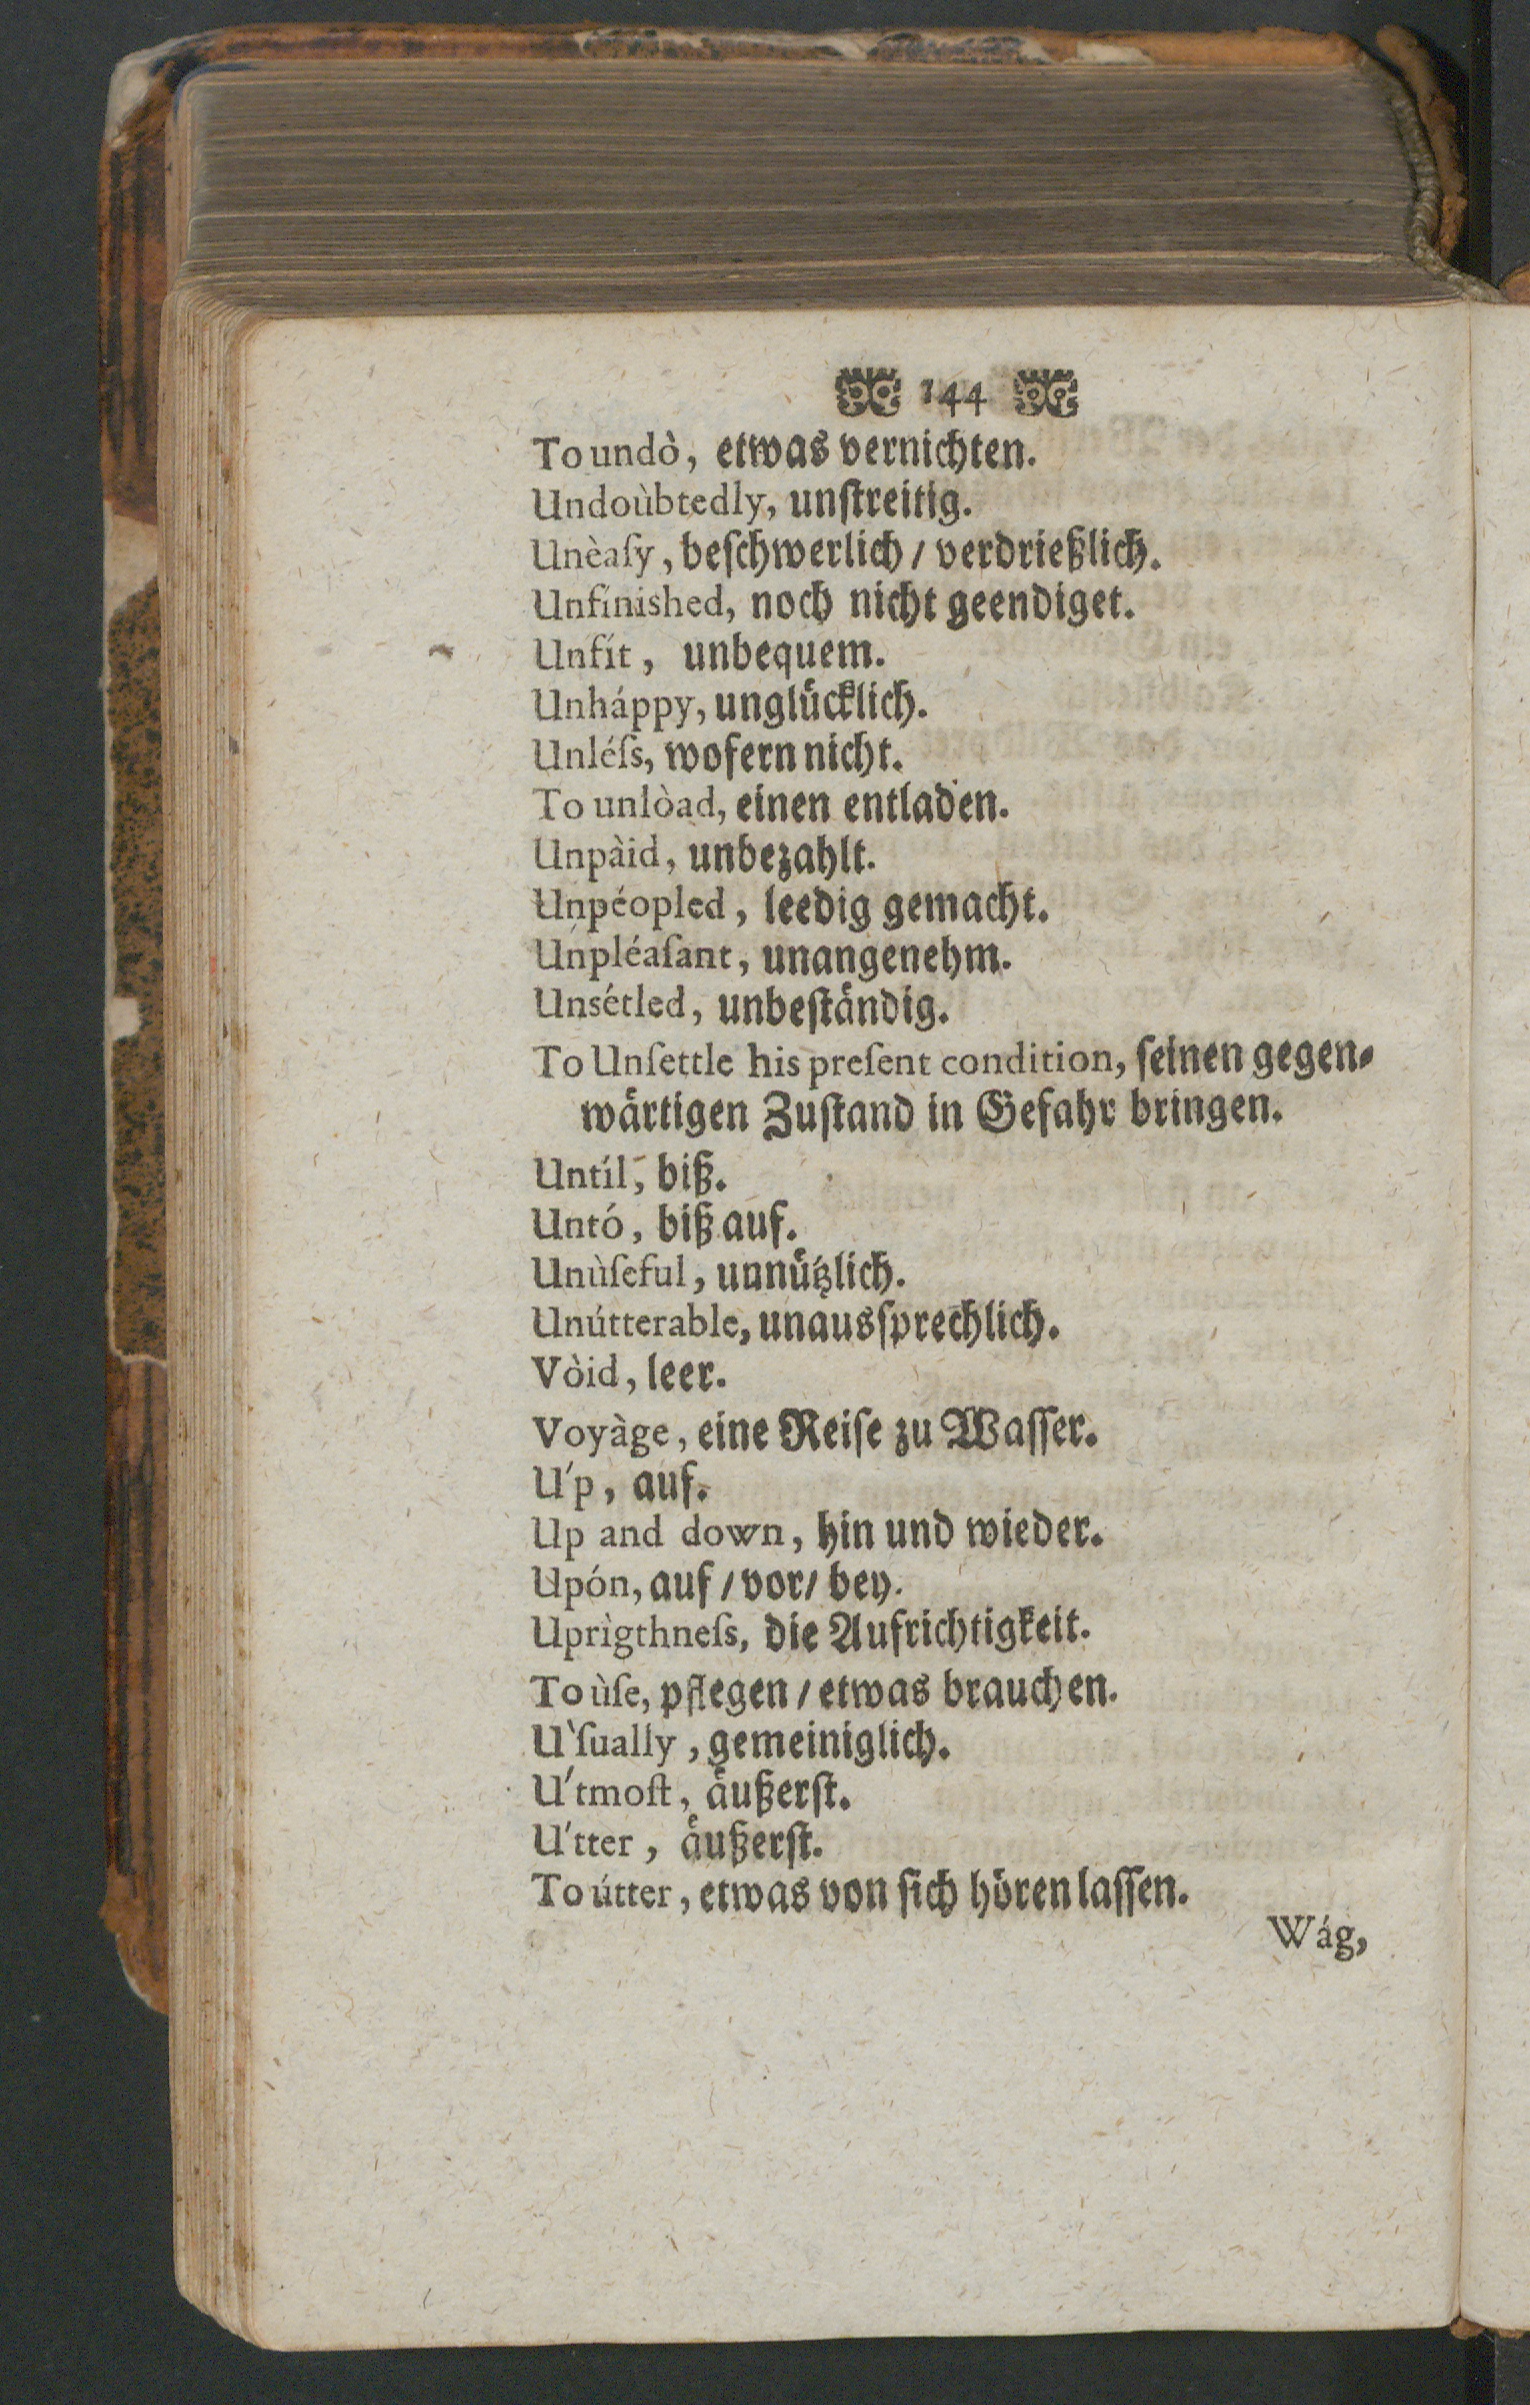 144
To undò, etwas vernichten.
Undoùbtedly, unſtreitig.
Unèaſy, beſchwerlich / verdrießlich.
Unfínished, noch nicht geendiget.
Unfít, unbequem.
Unháppy, unglücklich.
Unléſs, wofern nicht.
To unlòad, einen entladen.
Unpàid, unbezahlt.
Unpéopled, leedig gemacht.
Unpléaſant, unangenehm.
Unsétled, unbeſtändig.
To Unſettle his preſent condition, ſeinen gegen-
wärtigen Zuſtand in Gefahr bringen.
Untíl, biß.
Untó, biß auf.
Unùſeful, unnützlich.
Unútterable, unausſprechlich.
Vòid, leer.
Voyàge, eine Reiſe zu Waſſer.
U'p, auf.
Up and down, hin und wieder.
Upón, auf / vor / bey.
Uprìgthneſs, die Aufrichtigkeit.
To ùſe, pflegen / etwas brauchen.
U`ſually, gemeiniglich.
U'tmoſt, äußerſt.
U'tter, äußerſt.
To útter, etwas von ſich hören laſſen.
Wág,